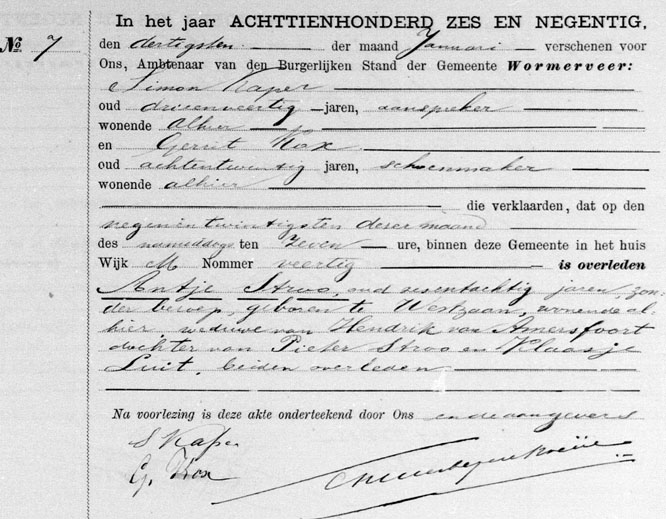 In het jaar ACHTTIENHONDERD ZES EN NEGENTIG,
No 7
den dertigsten der maand Januari verschenen voor
Ons, Ambtenaar van den Burgerlijken Stand der Gemeente Wormerveer:
Simon Kaper
oud drieenveertig jaren, aanspreker
wonende alhier
en Gerrit Kox
oud achtentwintig jaren, schoenmaker
wonende alhier
die verklaarden, dat op den
negenentwintigsten dezer maand
des namiddags ten zeven ure, binnen deze Gemeente in het huis
Wijk M Nommer veertig is overleden
Antje Stroo, oud zesentachtig jaren, zon-
der beroep, geboren te Westzaan, wonende al-
hier, weduwe van Hendrik van Amersfoort
dochter van Pieter Stroo en Klaasje
Luit, beiden overleden
Na voorlezing is deze akte onderteekend door Ons en de aangevers
S Kaper
G. Kox